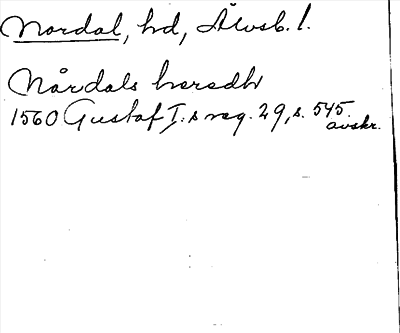 Nordal, hd, Älvsb. l.
Nårdals heredh
1560 Gustaf I:s reg. 29, s. 545.
avskr.